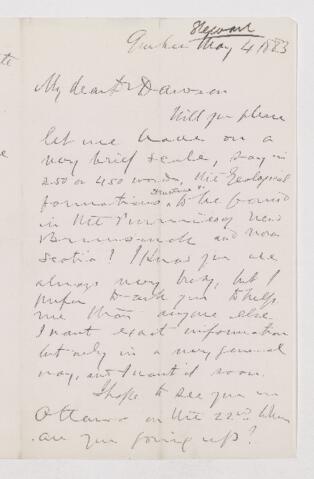 Stewart
Quebec May 4 1883
My dear Dr Dawson
Will you please
let me have on a
very brief scale, say in
250 or 450 words, the Geological
formations & to be found
in the Provinces of New
Brunswick and Nova
Scotia? I know you are
always very busy, but I
prefer to ask you to help
me than anyone else
I want exact information
but only in a very general
way, and I want it soon.
I hope to see you in
Ottawa on the 22nd. When
are you going up?